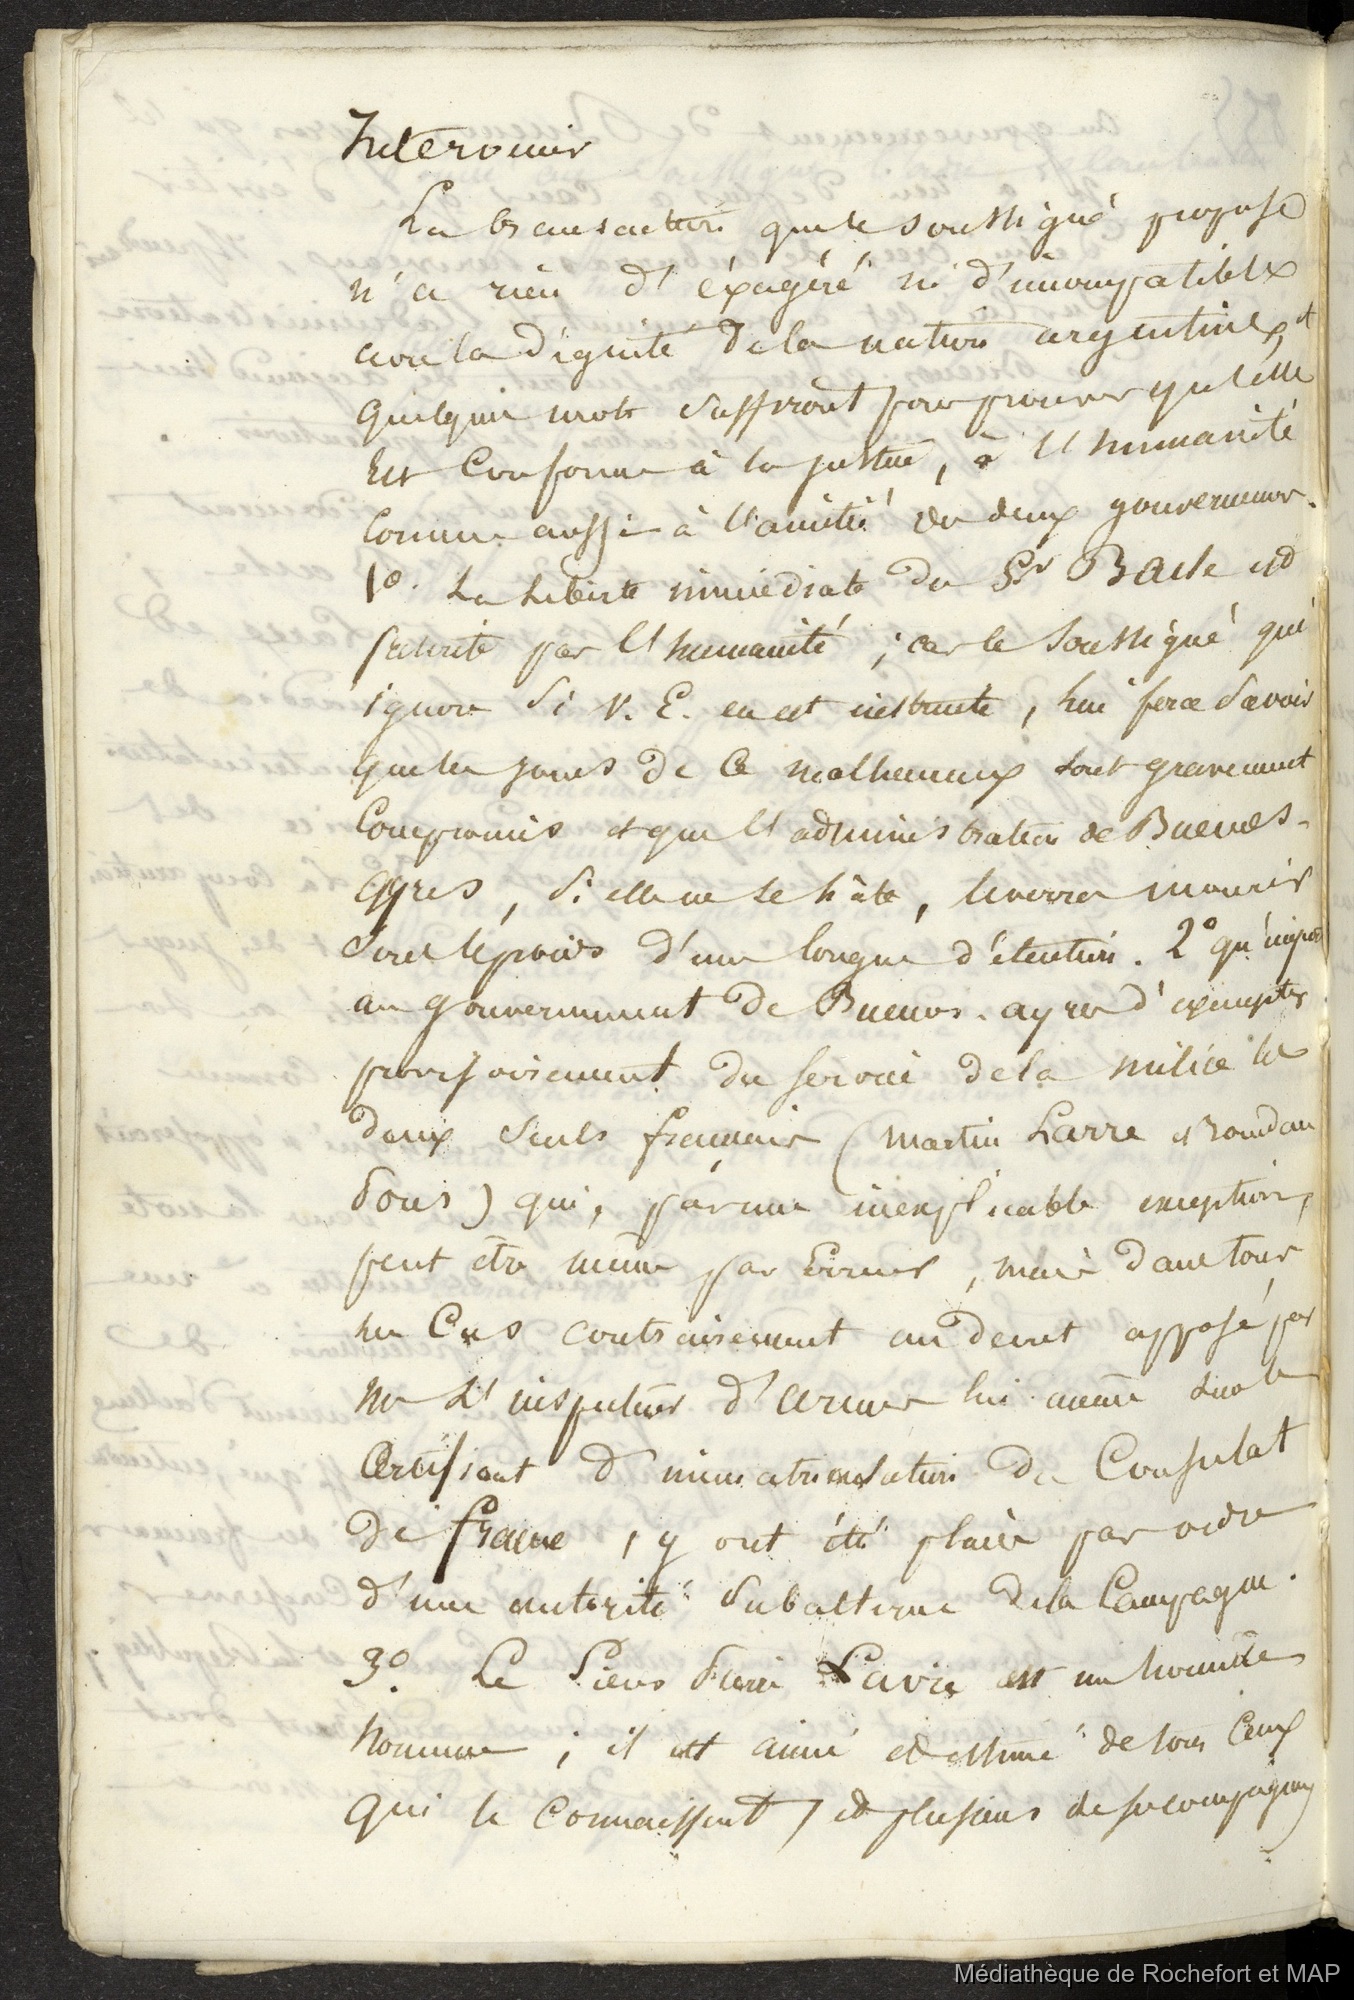 Intervenir
La transaction que le soussigné propose
n'a rien d'éxagéré ni d'incompatible
avec la dignité de la nation argentine, et
quelques mots suffiront pour prouver qu'elle
Est Conforme à la justice, à l'humanité
Comme aussi à l'amitié des deux gouvernemens.
1º. La Liberté immédiate du Sr Bacle est
par l'humanité ; car le Soussigné qui
ignore Si V. E. en est instruite, lui fera Savoir
que les jours de ce malheureux sont gravement
Compromis et que l'administration de Buenos-
ayres, Si elle ne se hâte, le verra mourir
Sous le poids d'une longue détention. 2º qu'importe
au gouvernement de Buenos-ayres d'exempter
provisoirement du Service de la milice les
deux Seuls français (Martin Larre et Jourdan
Pons) qui, par une inexplicable exception,
peut être même par Erreur, mais dans tous
les Cas contrairement au decret apposé par
Mr L'inspecteur d'armes lui même sur le
Certificat d'immatriculation du Consulat
De France, y ont été placés par ordre
d'une autorité Subalterne de la Campagne.
3º. Le Sieur Lavie est un honnête
homme ; il est aimé et estimé de tous Ceux
qui le Connaissent, et plusieurs de ses compagnons
Médiathèque de Rochefort et MAP